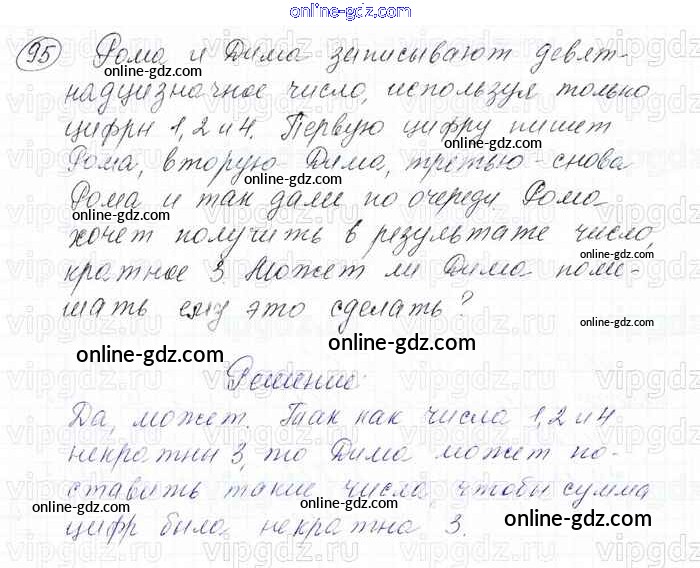 online-gdz.com
95 Рома и Дима записывают девят-
online-gdz.com
надцизначное число, используя только
цифры 1, 2 и 4. Первую цифру пишет
online-gdz.com
Рома, вторую Дима, третью - снова
online-gdz.com
Рома и так дали по очереди Рома
online-gdz.com
хочет получить в результате число,
кратное 3. Может ли Дима поме-
online-gdz.com
шать ему это сделать?
online-gdz.com
online-gdz.com
Решение:
online-gdz.com
Да, может. Так как числа 1, 2 и 4
online-gdz.com
некратны 3, то Дима может по-
ставить такие числа, чтобы сумма
цифр была некратна 3.
online-gdz.com
online-gdz.com